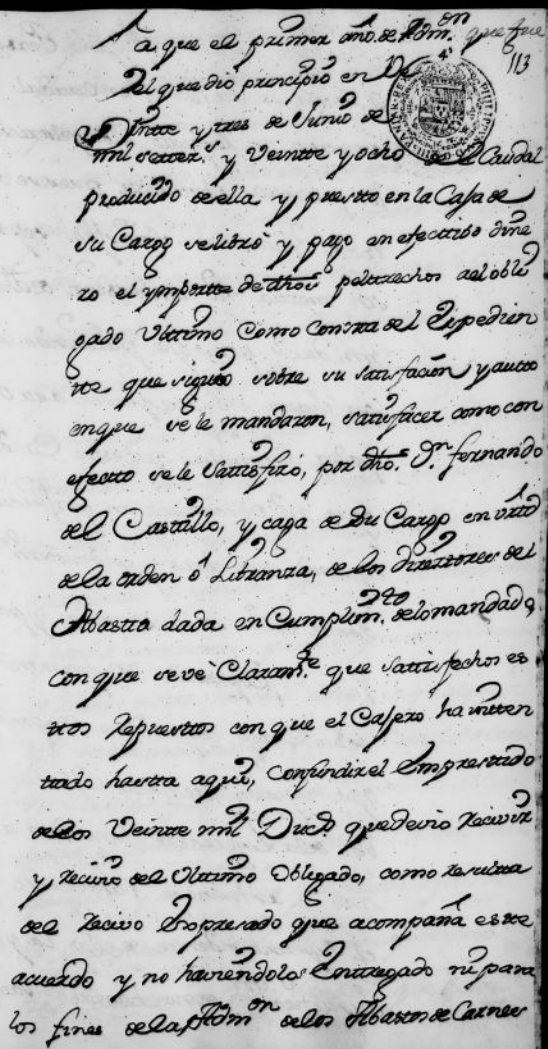 a que el primer año de Adm.on que fue
113
del que dió principio en Ve
Vintte y tres de Junio de
mil setter.s y Veintte y ocho del Caudal
producido de ella y puestto en la Caja de
su Cargo se libró y pago en efecttibo dine
ro el ymportte de dhos peltrechos al obli
gado Ulttimo Como Consta del Expedien
tte que siguió sobre su sattisfacion y autto
en que se le mandaron, sattisfacer como con
efectto se le Sattisfizó, por dho. Dn. fernando
del Casttillo, y caga de su Cargo en virtd
de la orden ó Libranza, de los directtores del
Abastto dada en Cumplim.to de lo mandado,
con que se vé Claram.te que sattisfechos es
ttos Repuesttos con que el Cajero ha intten
ttado hastta aqui, confundir el Emprestado
de los Veintte mil Ducd.s que devio Recivir
y Recivio del Ulttimo Obligado, como resultta
del Recivo Expresado que acompaña estte
acuerdo y no haviendolos Enttregado ni para
los fines de la Adm.on de los Abasttos de Carnes